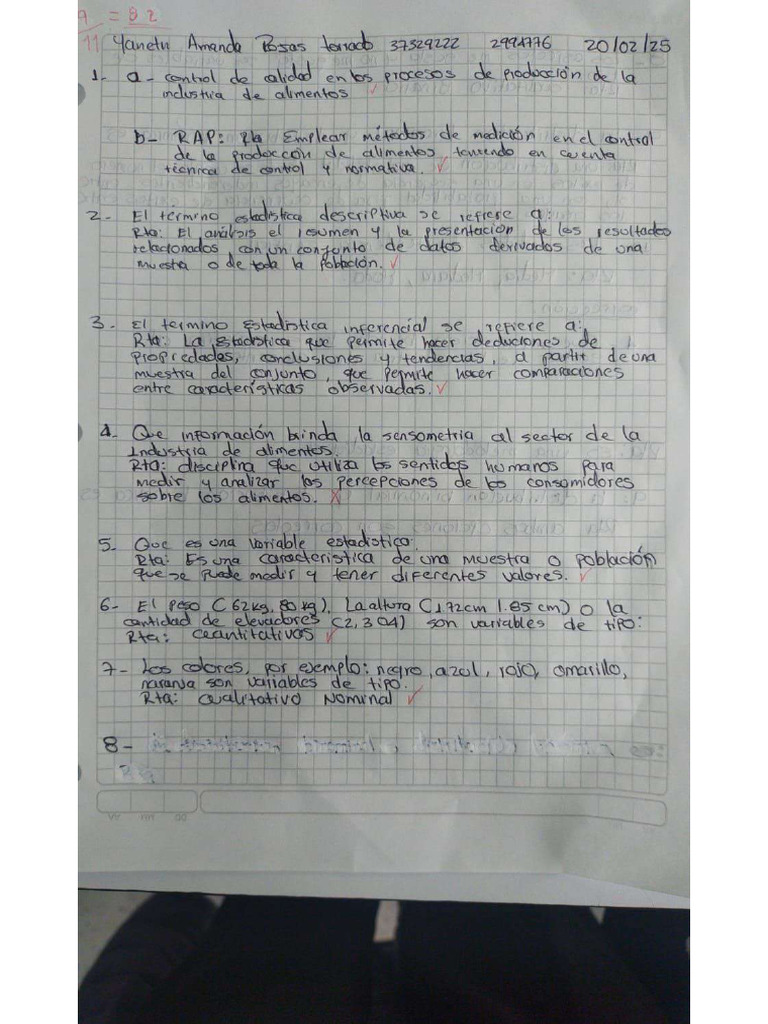 9 = 82
11 Yanetu Amanda Rosas 37329222 2994776 20/02/25
1- a- control de calidad en los procesos de producción de la
industria de alimentos
b- RAP: Rta Emplear métodos de medición en el control
de la producción de alimentos, teniendo en cuenta
técnica de control y normativa.
2- El termino estadistica descriptiva se refiere a:
Rta: El análisis el resumen y la presentación de los resultados
relacionados con un conjunto de datos derivados de una
muestra o de toda la población.
3- El termino Estadistica inferencial se refiere a:
Rta: La Estadistica que permite hacer deduciones de
propiedades, conclusiones y tendencias, a partir de una
muestra del conjunto, que permite hacer comparaciones
entre características observadas.
4- Que información brinda la sensometria al sector de la
Industria de alimentos.
Rta: disciplina que utiliza los sentidos humanos para
medir y analizar las percepciones de los consumidores
sobre los alimentos.
5- Que es una variable estadistico.
Rta: Es una caracteristica de una muestra o población
que se puede medir y tener diferentes valores.
6- El peso (62kg, 80kg). La altura (172cm 1.85cm) o la
cantidad de elevadores (2,304) son variables de tipo:
Rta: cuantitativas
7- Los colores, por ejemplo: negro, azul, rojo, amarillo,
naranja son variables de tipo.
Rta: Cualitativo Nominal
8-